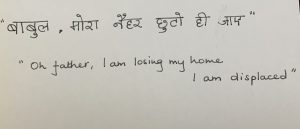 "बाबुल, मोरा नैहर छुटो ही जाए"
"Oh father, I am losing my home
I am displaced"